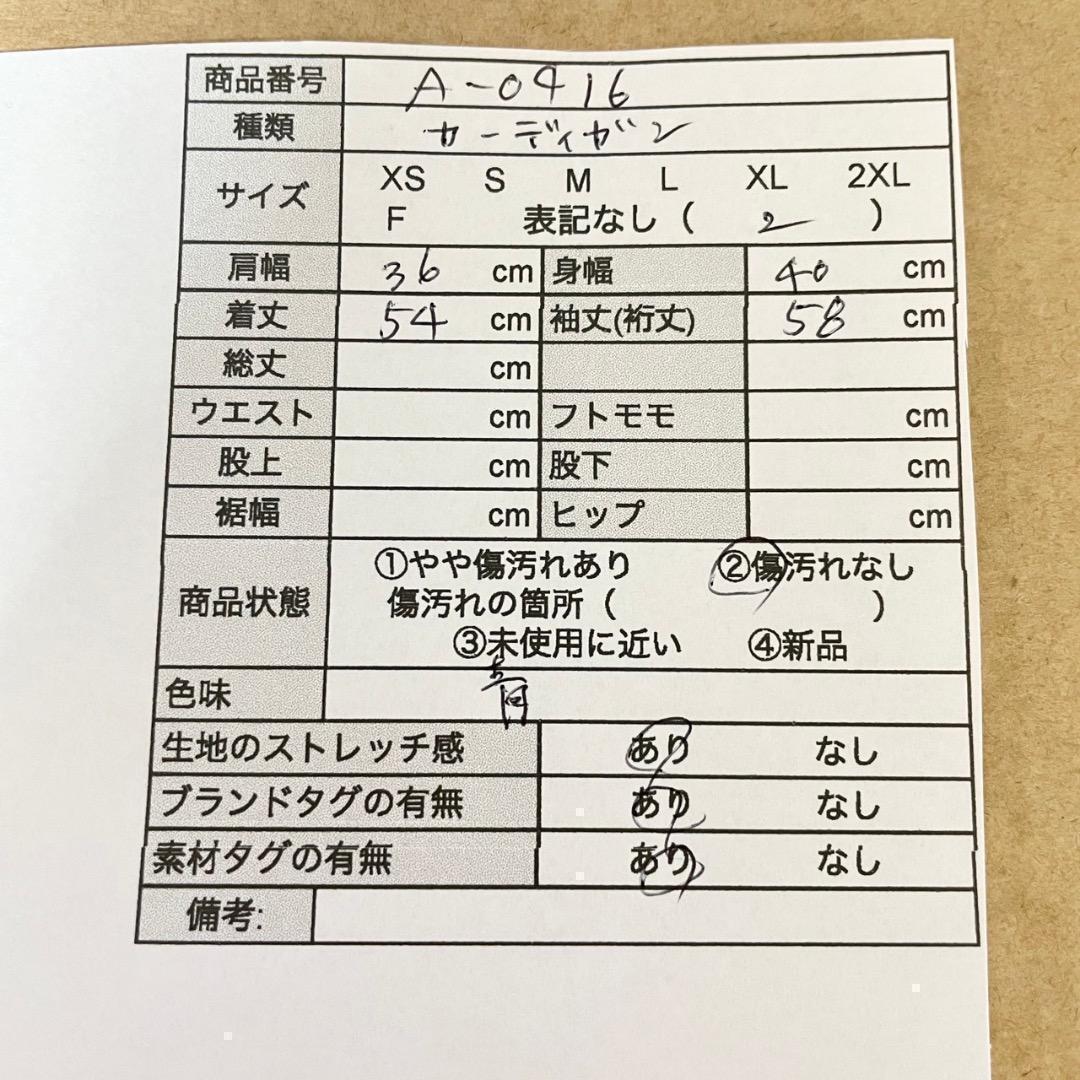 商品番号 A-0416
種類 カーディガン
サイズ XS S M L XL 2XL
F 表記なし ( 2 )
肩幅 36 cm 身幅 40 cm
着丈 54 cm 袖丈(裄丈) 58 cm
総丈 cm
ウエスト cm フトモモ cm
股上 cm 股下 cm
裾幅 cm ヒップ cm
商品状態 ①やや傷汚れあり ②傷汚れなし
傷汚れの箇所 ( )
③未使用に近い ④新品
色味 青
生地のストレッチ感 あり なし
ブランドタグの有無 あり なし
素材タグの有無 あり なし
備考: